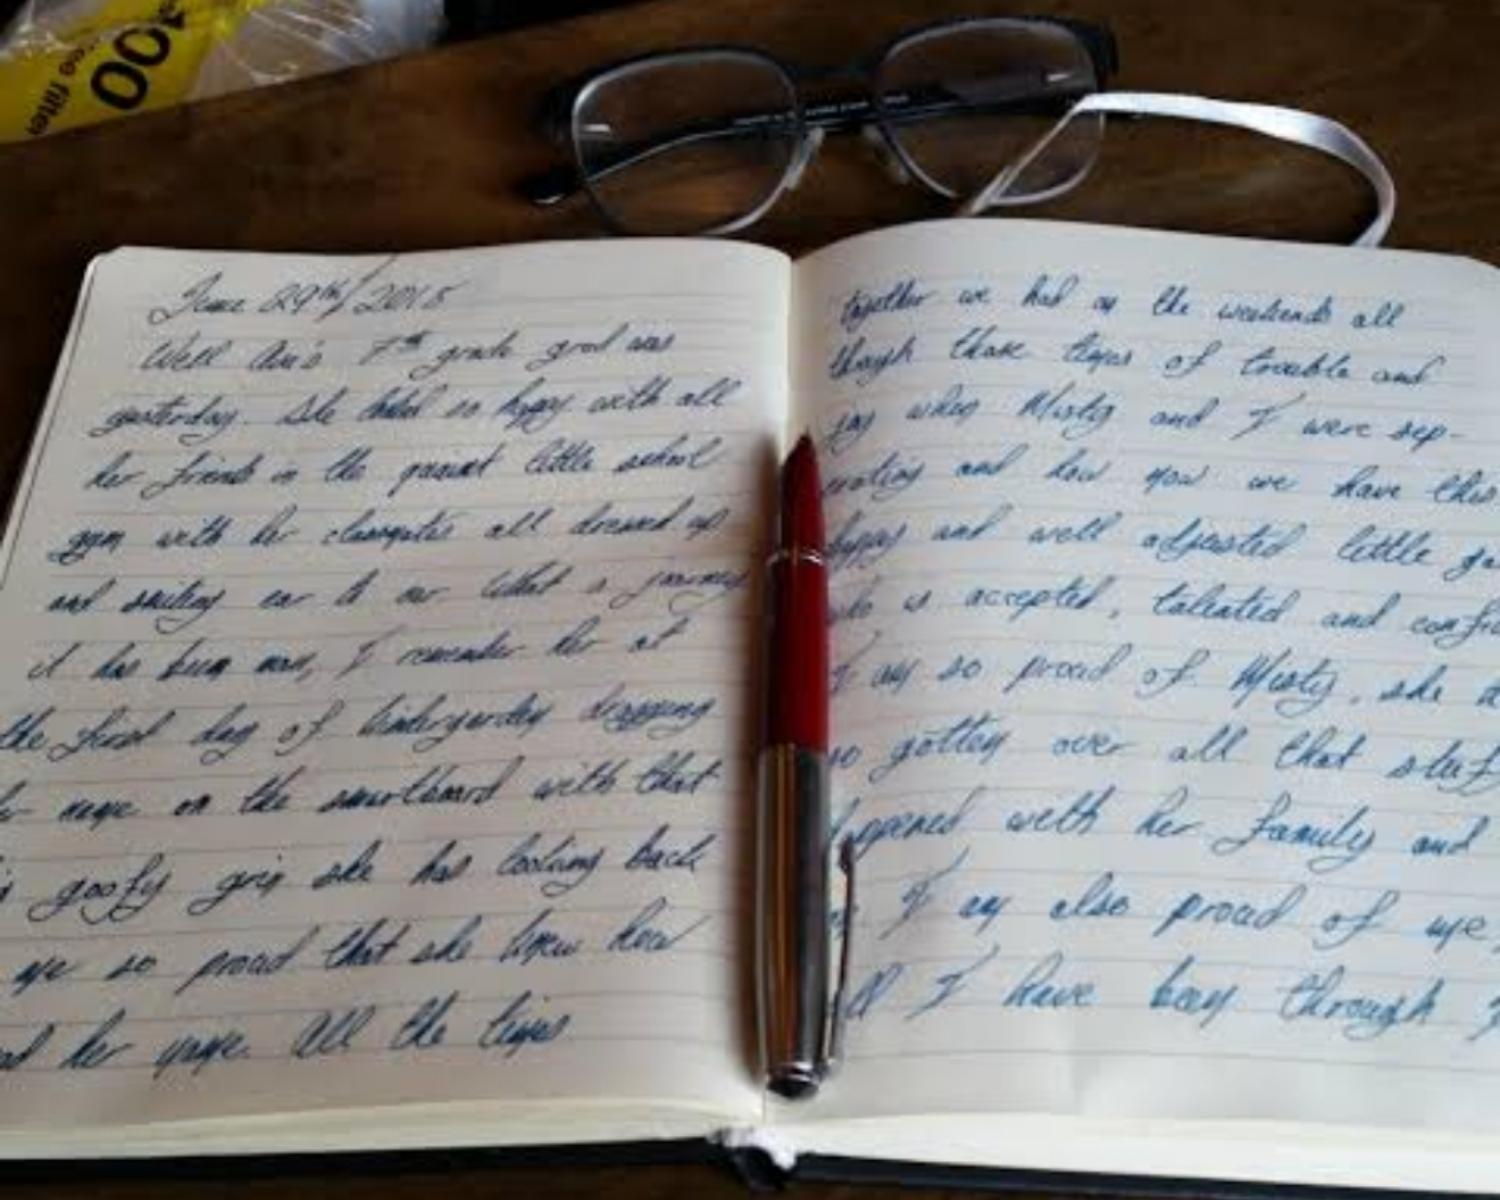 00
filter
June 29th/2015
Well 7th grade grad was
yesterday. She looked so happy with all
her friends in the quaint little school
gym with her classmates all dressed up
and smiling ear to ear. What a journey
it has been man, I remember her at
the first day of kindergarden dragging
name on the smartboard with that
goofy grin she has looking back
me so proud that she knew how
her name. All the times
together we had on the weekends all
though those times of trouble and
when Misty and I were sep-
erating and how now we have this
happy and well adjusted little
who is accepted, talented and
I am so proud of Misty, she
so gotten over all that
happened with her family and
I am also proud of me,
all I have been through